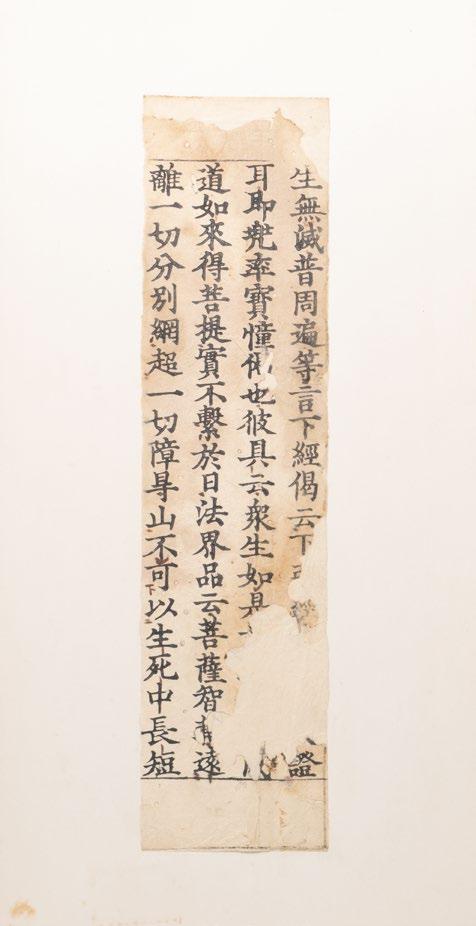 生無減普周遍等言下經偈云下證
耳即兠率寶憧偈也彼具云衆生如是
道如來得菩提實不繫於日法界品云菩薩智遠
離一切分別網超一切障㝵山不可以生死中長短